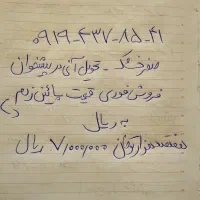 ۰۹۱۹-۴۳۷-۸۵-۴۱
صفر خشک - تحویل آنی در پیشخوان
فروش فوری قیمت پائین زدم
به ریال
هفتصد هزار تومان ۷/۰۰۰/۰۰۰ ریال